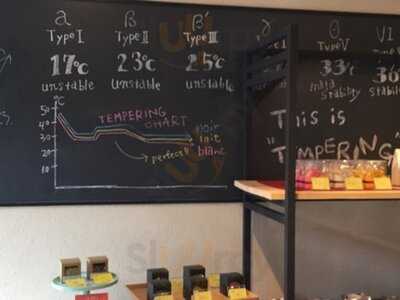 α β β' γ θ VI
Type I Type II Type III Type V
17℃ 23℃ 25℃ 33℃ 36
unstable unstable unstable mid stability stability
℃
50
40
30
20
10
TEMPERING CHART
noir
lait
blanc
→ perfect!!
This is
"TEMPERING"